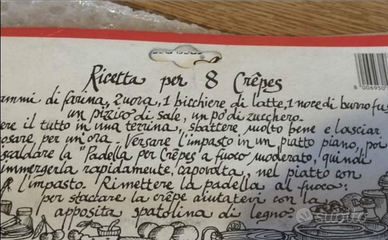 Ricetta per 8 Crêpes
ammi di farina, 2 uova, 1 bicchiere di latte, 1 noce di burro fu
un pizzico di sale, un pò di zucchero.
ere il tutto in una terrina, sbattere molto bene e lasciar
osare, per un'ora. Versare l'impasto in un piatto piano, poi
scaldare la "Padella per Crêpes a fuoco moderato, quindi
immergerla rapidamente, capovolta, nel piatto con
l'impasto. Rimettere la padella al fuoco:
per staccare la crêpe aiutatevi con la
apposita spatolina di legno.
8 006950
subito